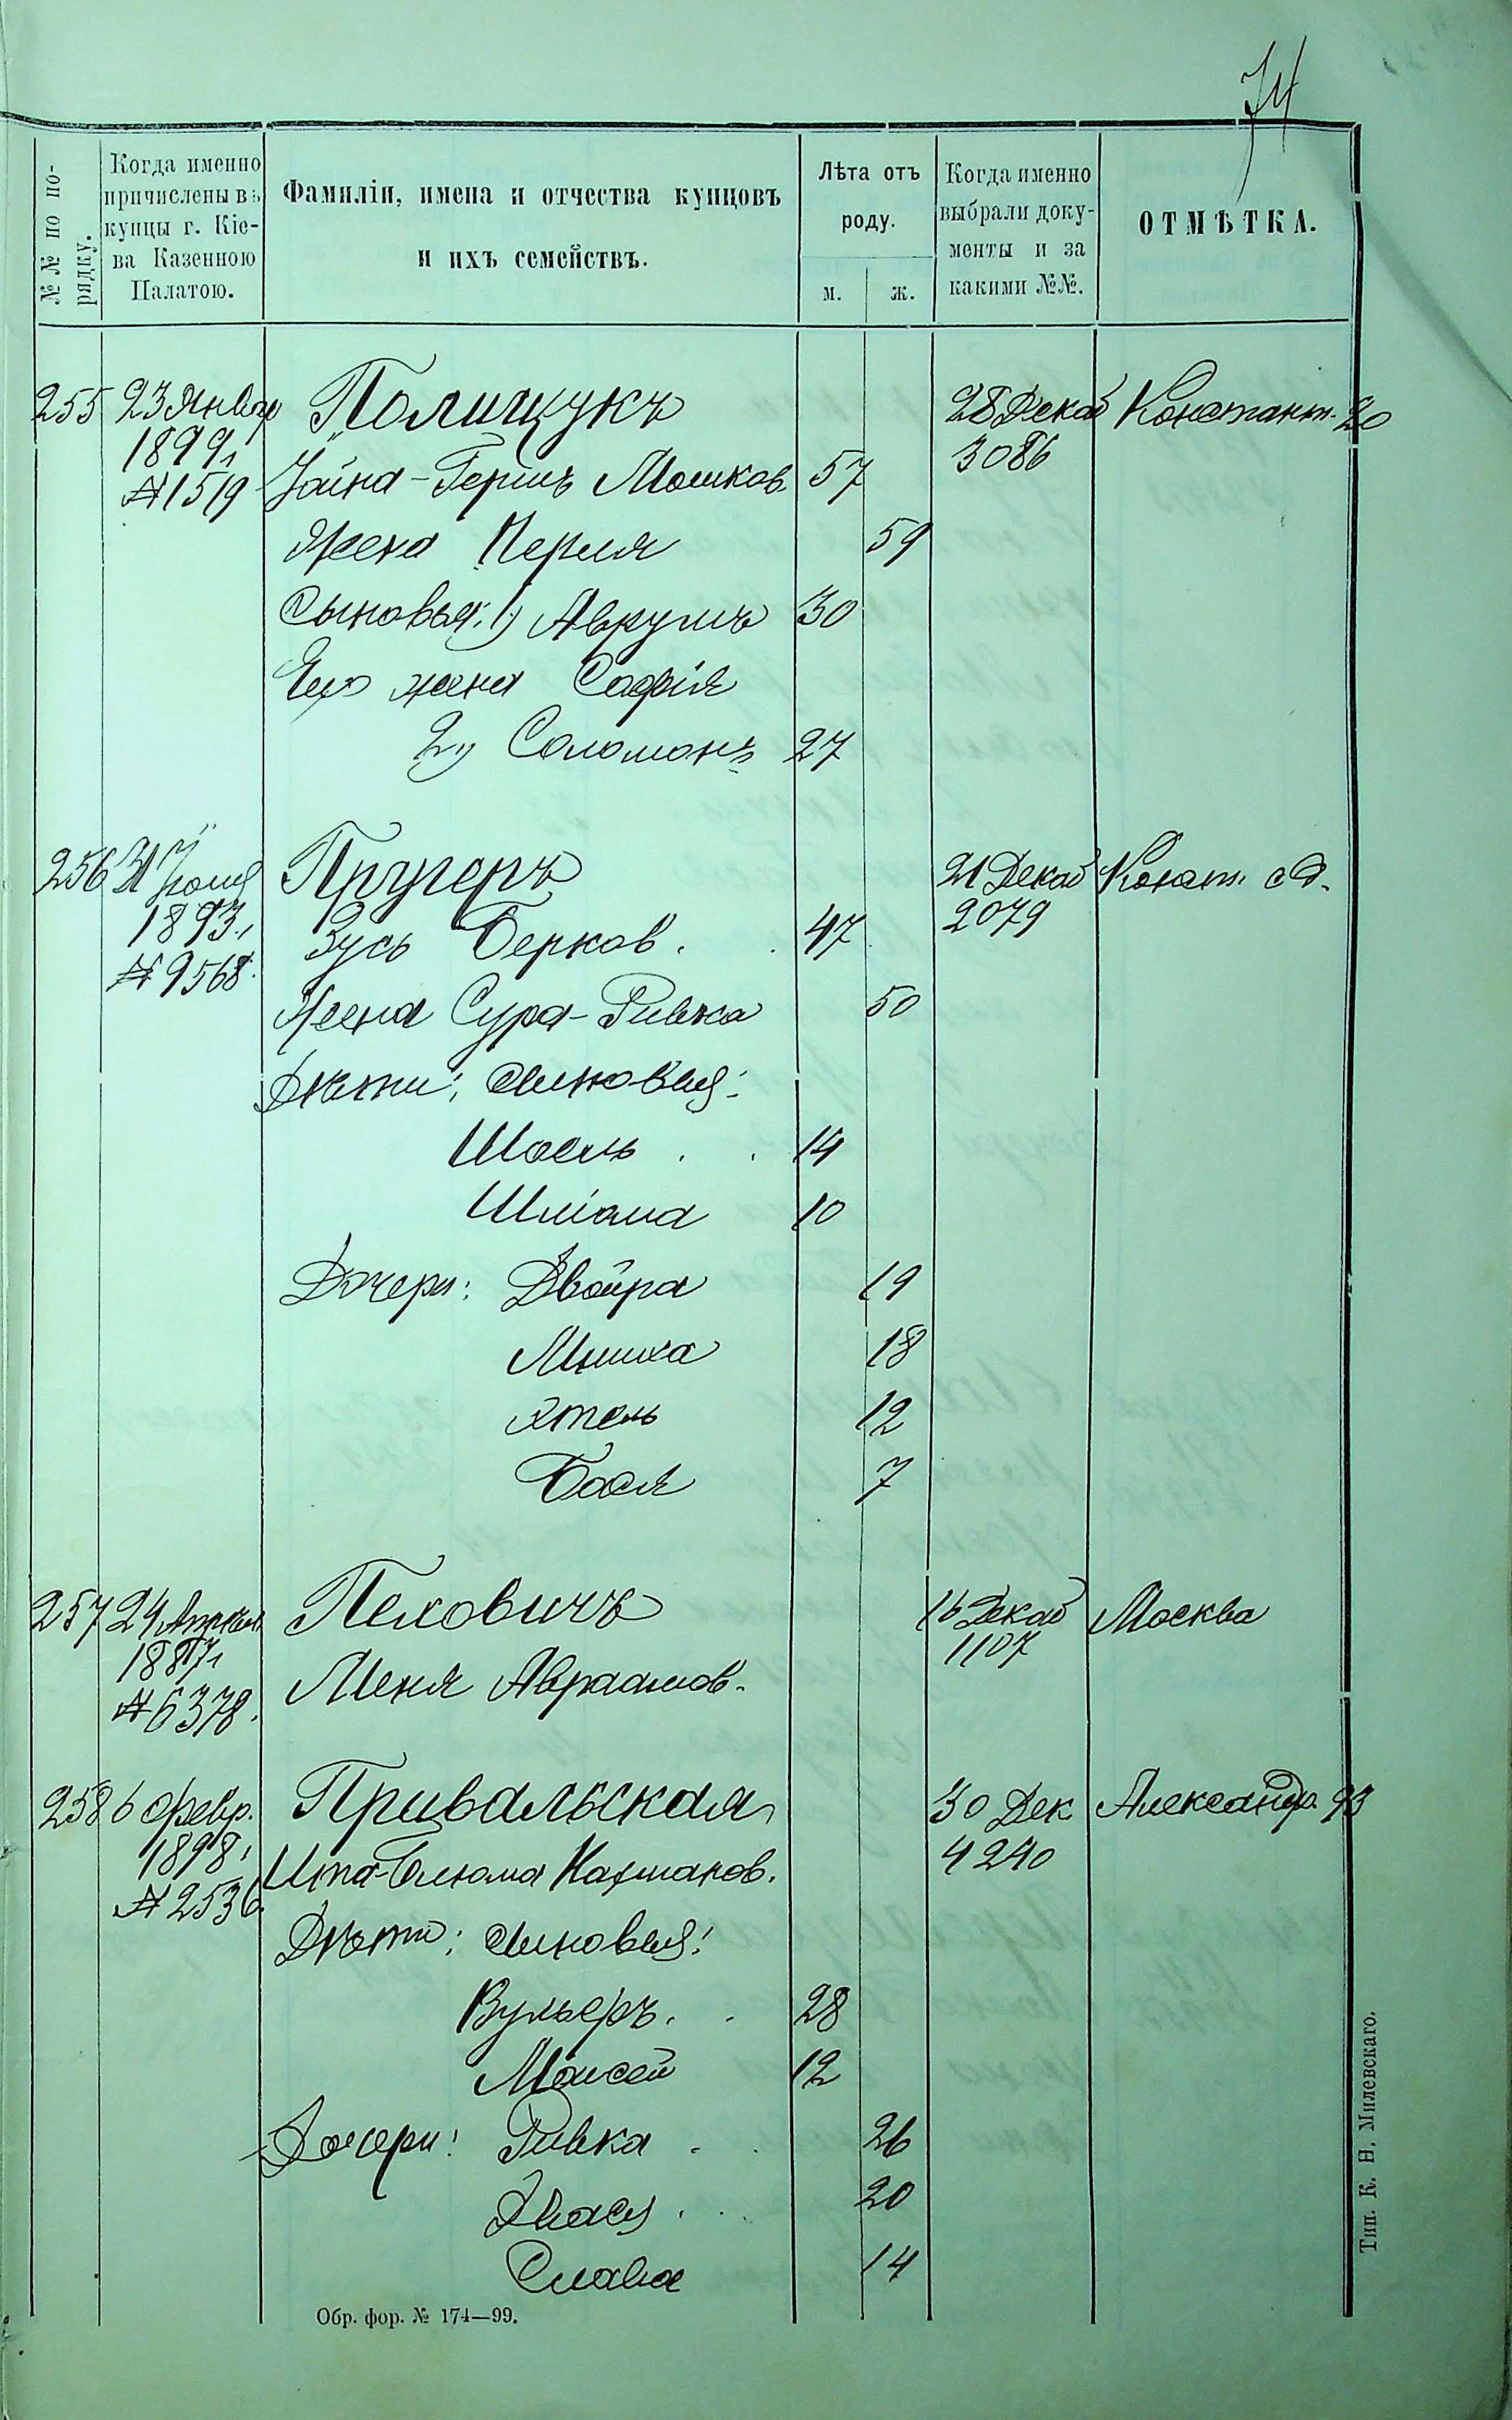 74
№№ по по-
рядку.
Когда именно
причислены въ
купцы г. Кіе-
ва Казенною
Палатою.
Фамиліи, имена и отчества купцовъ
и ихъ семействъ.
Лѣта отъ
роду.
м. ж.
Когда именно
выбрали доку-
менты и за
какими №№.
ОТМѢТКА.
255 23 Январ Полищукъ 28 Декаб Константи. 20
1899, 3086
№ 1519 Іойна-Гершъ Мошков. 57
Жена Перля 59
Сыновья: 1) Аврумъ 30
Его жена Софія
2) Соломонъ 27
256 31 Іюля Пругеръ 21 Декаб Конст. с д.
1893, Зусь Берков. 47 2079
№ 9568.
Жена Сура-Ривка 50
Дѣти: сыновья:
Шоель 14
Шліома 10
Дочери: Двойра 19
18
Этель 12
Бася 7
257 24 Апрѣля Пеховичъ 16 Декаб Москва
1887, 1107
№ 6378. Меня Авраамов.
258 6 февр. Привальская 30 Дек Александр. 93
1898, 4240
№ 2536. Ита-Блюма Нахманов.
Дѣти: сыновья:
Вульфъ. 28
Моисей 12
Дочери: Ривка 26
Хвася 20
Слава 14
Обр. фор. № 174—99.
Тип. К. Н. Милевскаго.